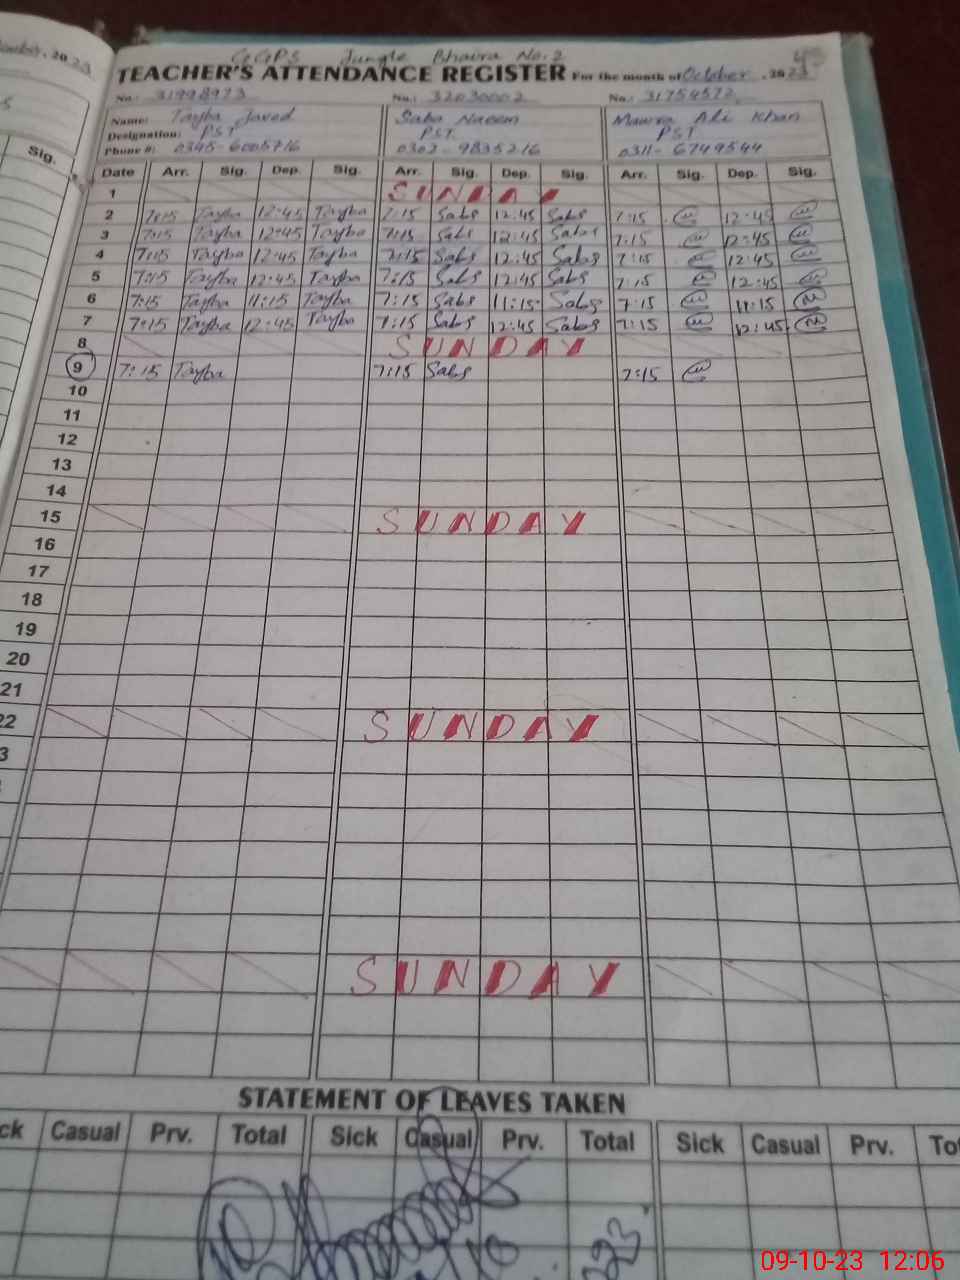 GGPS Jungle Bhaira No.2
TEACHER'S ATTENDANCE REGISTER For the month of October, 2023
No.: 31998973 No.: 32030002 No.: 31754572
Name: Tayba Javed Saba Naeem Mawra Ali Khan
Designation: PST PST PST
Phone #: 0345-6005716 0302-9835216 0311-6749544
Sig. Date Arr. Sig. Dep. Sig. Arr. Sig. Dep. Sig. Arr. Sig. Dep. Sig.
1 SUNDAY
2 7:15 Tayba 12:45 Tayba 7:15 Saba 12:45 Saba 7:15 12:45
3 7:15 Tayba 12:45 Tayba 7:15 Saba 12:45 Saba 7:15 12:45
4 7:15 Tayba 12:45 Tayba 7:15 Saba 12:45 Saba 7:15 12:45
5 7:15 Tayba 12:45 Tayba 7:15 Saba 12:45 Saba 7:15 12:45
6 7:15 Tayba 11:15 Tayba 7:15 Saba 11:15 Saba 7:15 11:15
7 7:15 Tayba 12:45 Tayba 7:15 Saba 12:45 Saba 7:15 12:45
8 SUNDAY
9 7:15 Tayba 7:15 Saba 7:15
10
11
12
13
14
15 SUNDAY
16
17
18
19
20
21
22 SUNDAY
3
SUNDAY
STATEMENT OF LEAVES TAKEN
ck Casual Prv. Total Sick Casual Prv. Total Sick Casual Prv. To
09-10-23 12:06